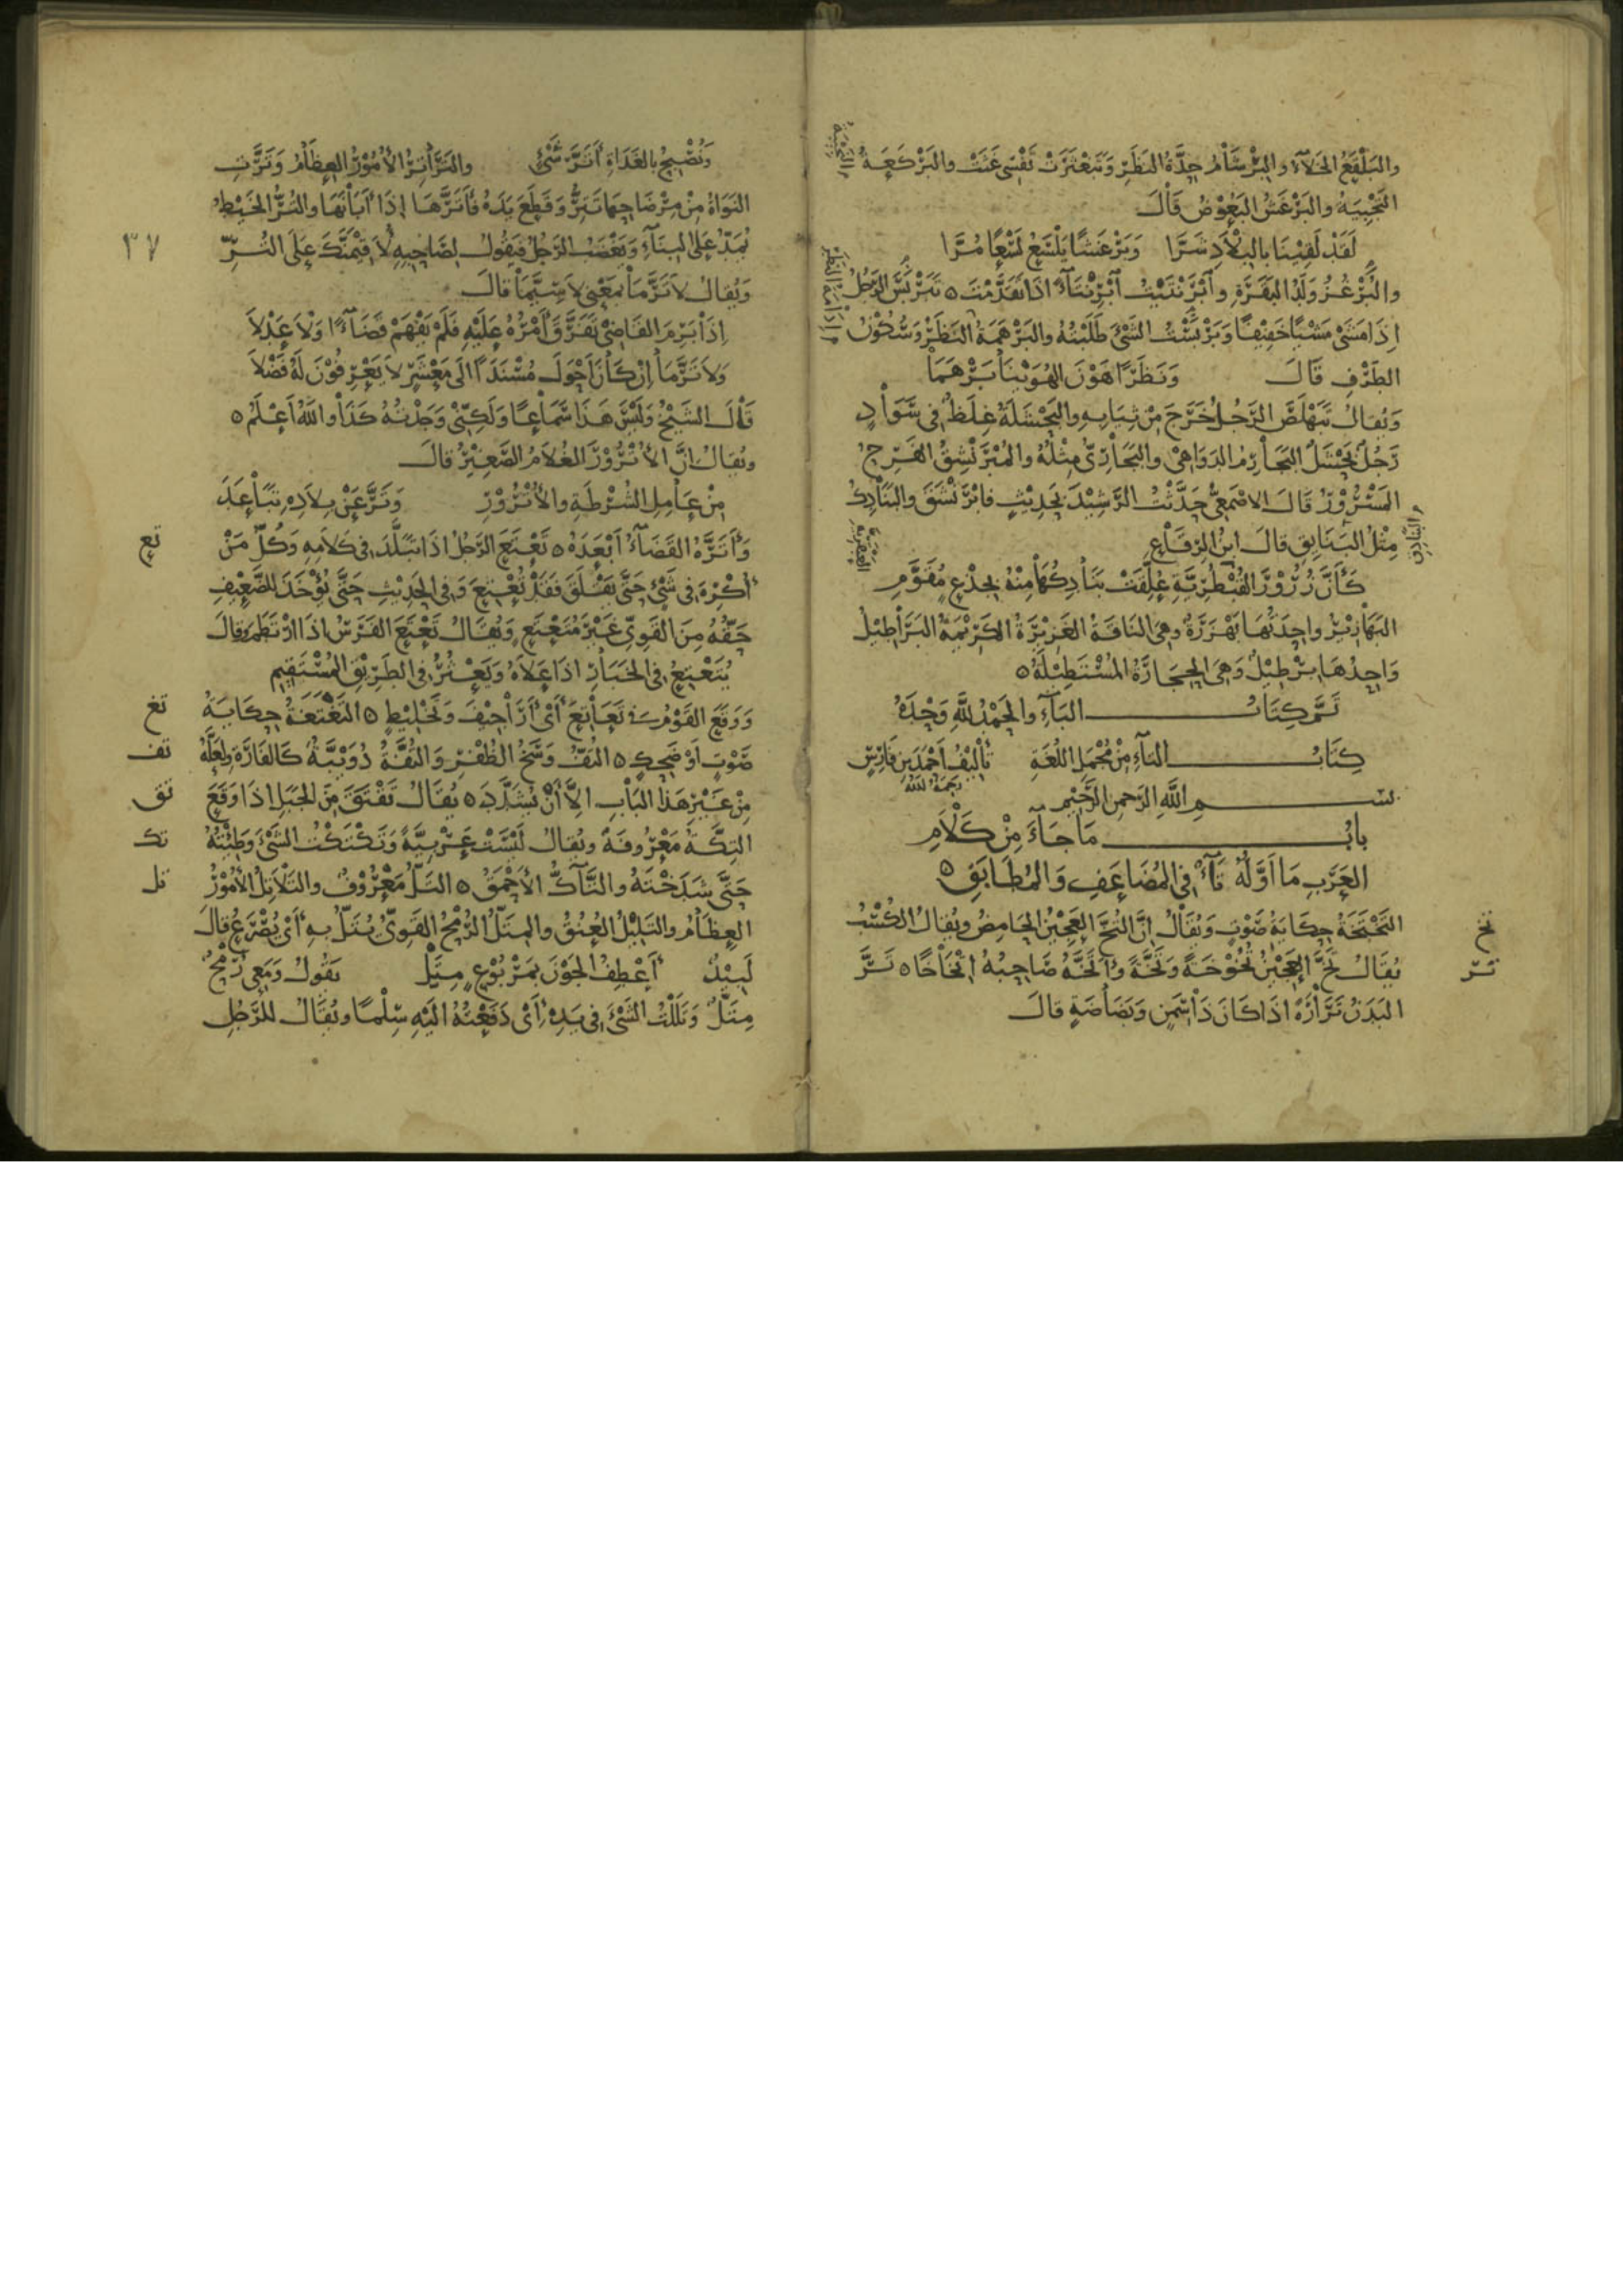 والبَلْقَعُ الخَلاَءُ والبَرْشَامُ حِدَّةُ النَظَرِ وَتَبَعْثَرَتْ نَفْسِى غَثَتْ والبَرْكَعَةُ
والبَرْغَشُ البَعُوْضُ قَالَ
لَقَدْ لَقِيْنَا بِالبِلاَدِ شَرَّا وَبَرْغَشًا يَلْسَعُ لَسْعًا مُرَّا
والبُرْغُزُ وَلَدُ البَقَرَةِ وابْرَنْتَيْتُ ابْرِنْتَاءً اذَا تَقَدَّمْتَ ٥ تَبَرْبَسَ الرَجُلُ
اِذَا مَشَى مَشْيًا خَفِيْفًا وَبَرْبَسْتُ الشَىْءَ طَلَبْتُهُ والبَرْهَمَةُ النَظَرُ وَسُكُوْنُ
الطَرْفِ قَالَ وَنَظَرًا هَوْنَ الهُوَيْنَا بَرْهَمَا
وَيُقَالُ تَبَهْلَصَ الرَجُلُ خَرَجَ مِنْ ثِيَابِهِ والبَحْشَلَةُ غِلَظٌ فِى سَوَادٍ
رَجُلٌ بَحْشَلٌ البَجَارِمُ الدَوَاهِىْ والبَجَارِىُّ مِثْلُهُ والمُبْرَنْشِقُ الفَرِحُ
المَسْرُوْرُ قَالَ الاصْمَعِىُّ حَدَّثْتُ الرَشِيْدَ بِحَدِيْثٍ فابْرَنْشَقَ والبَنَادِكُ
مِثْلُ البَنَايِقِ قَالَ ابنُ الرِقَاعِ
كَأَنَّ زُرُوْرَ القُبْطُرِيَّةِ عُلِّقَتْ بَنَادِكُهَا مِنْهُ بِجِذْعٍ مُقَوَّمِ
البَهَازِيْرُ واحِدَتُهَا بَهْزَرَةٌ وهِىَ النَاقَةُ الغَزِيْرَةُ الكَرِيْمَةُ البَرَاطِيْلُ
وَاحِدُهَا بِرْطِيْلٌ وَهِىَ الحِجَارَةُ المُسْتَطِيْلَةُ ٥
تَمَّ كِتَابُ البَآءِ والحَمْدُ لِلَّهِ وَحْدَهُ
كِتَابُ التاءِ مِنْ مُجْمَلِ اللُغَةِ تَأْلِيْفُ أَحْمَدَ بنِ فَارِسٍ
رَحِمَهُ اللهُ
بسْمِ اللَّهِ الرَحمنِ الرَحِيْمِ
بابُ مَا جَاءَ مِنْ كَلاَمِ
العَرَبِ مَا اَوَّلُهُ تَاءٌ فِى المُضَاعَفِ وَالمُطَابَقِ ٥
التَخْتَخَةُ حِكَايَةُ صَوْتٍ وَيُقَالُ اِنَّ التَخَّ العَجِيْنُ الحَامِضُ وَيُقَالُ الكُسْبُ
يُقَالُ تَخَّ العَجِيْنُ تُخُوْخَةً وَتَخَّةً وَاَتَخَّهُ صَاحِبُهُ اِتْخَاخًا ٥ تَرَّ
البَدَنُ تَرَارَةً اذَا كَانَ ذَا سِمَنٍ وَبَضَاضَةٍ قَالَ
تخ
تر
وَنُصْبِحُ بِالغَدَاةِ أَتَرَّ شَىْءٍ والتَرَاتِرُ الأُمُوْرُ العِظَامُ وَتَرَّتِ
النَوَاةُ مِنْ مِرْضَاحِهَا تَتِرُّ وَقَطَعَ يَدَهُ فَأَتَرَّهَا اِذَا أَبَانَهَا والتُرُّ الخَيْطُ
يُمَدُّ عَلَى البِنَاءِ وَيَغْضَبُ الرَجُلُ فَيَقُولُ لِصَاحِبِهِ لأُقِيْمَنَّكَ عَلَى التُرِّ
وَيُقَالُ لاَ تَرَّمَا بِمَعْنى لاَ سِيَّمَا قَالَ
٣٧
اِذَا بَرِمَ القَاضِىْ تَفَرَّقَ أَمْرُهُ عَلَيْهِ فَلَمْ يَفْهَمْ قَضَاءً وَلاَ عَدْلاَ
وَلاَ تَرَّمَا اِنْ كَانَ اَحْوَلَ مُسْنَدًا الَى مَعْشَرٍ لاَ يَعْرِفُوْنَ لَهُ فَضْلاَ
قَالَ الشَيْخُ وَلَيْسَ هَذَا سَمَاعًا وَلَكِنِّىْ وَجَدْتُهُ كَذَا واللهُ اَعْلَمُ ٥
وَيُقَالُ اِنَّ الأُتْرُوْرَ الغُلاَمُ الصَغِيْرُ قَالَ
مِنْ عَامِلِ الشُرْطَةِ والأُتْرُوْرِ وَتَرَّ عَنْ بِلاَدِهِ تَبَاعَدَ
وَأَتَرَّهُ القَضَاءُ اَبْعَدَهُ ٥ تَعْتَعَ الرَجُلُ اذَا تَبَلَّدَ فِى كَلاَمِهِ وَكُلُّ مَنْ
تع
أُكْرِهَ فِى شَىْءٍ حَتَّى يَقْلَقَ فَقَدْ تُعْتِعَ وَفِى الحَدِيْثِ حَتَّى يُؤْخَذَ لِلضَعِيْفِ
حَقُّهُ مِنَ القَوِىِّ غَيْرَ مُتَعْتَعٍ وَيُقَالُ تَعْتَعَ الفَرَسُ اذَا ارْتَطَمَ وقالَ
يُتَعْتِعُ فِى الخَبَارِ اذَا عَلاَهُ وَيَعْثُرُ فِى الطَرِيْقِ المُسْتَقِيْمِ
وَوَقَعَ القَوْمُ فِى تَعَاتِعَ أَىْ أَرَاجِيْفَ وَتَخْلِيْطٍ ٥ التَغْتَغَةُ حِكَايَةُ
تغ
صَوْتٍ اَوْ ضَحِكٍ ٥ التُفُّ وَسَخُ الظُفْرِ وَالتُفَّةُ دُوَيْبَّةٌ كَالفَارَةِ وَلَعَلَّهُ
تف
مِنْ غَيْرِ هَذَا البَابِ اِلاَّ أَنْ يُشَدَّدَ ٥ يُقَالُ تَقْتَقَ مِنَ الجَبَلِ اذَا وَقَعَ
تق
التِكَّةُ مَعْرُوفَةٌ وَيُقَالُ لَيْسَتْ عَرَبِيَّةً وَتَكْتَكْتُ الشَىْءَ وَطِئْتُهُ
تك
حَتَّى شَدَخْتَهُ والتَاكُّ الأَحْمَقُ ٥ التَلُّ مَعْرُوْفٌ والتَلاَتِلُ الأُمُوْرُ
تل
العِظَامُ والتَلِيْلُ العُنُقُ والمِتَلُّ الرُمْحُ القَوِىُّ يُتَلُّ بِهِ أَىْ يُصْرَعُ قَالَ
لَبِيْدٌ أَعْطِفُ الجَوْنَ بِمَرْبُوْعٍ مِتَلّْ يَقُولُ وَمَعِى رُمْحٌ
مِتَلٌّ وَتَلَلْتُ الشَىْءَ فِى يَدِهِ أَىْ دَفَعْتُهُ الَيْهِ سِلْمًا وَيُقَالُ لِلرَجُلِ